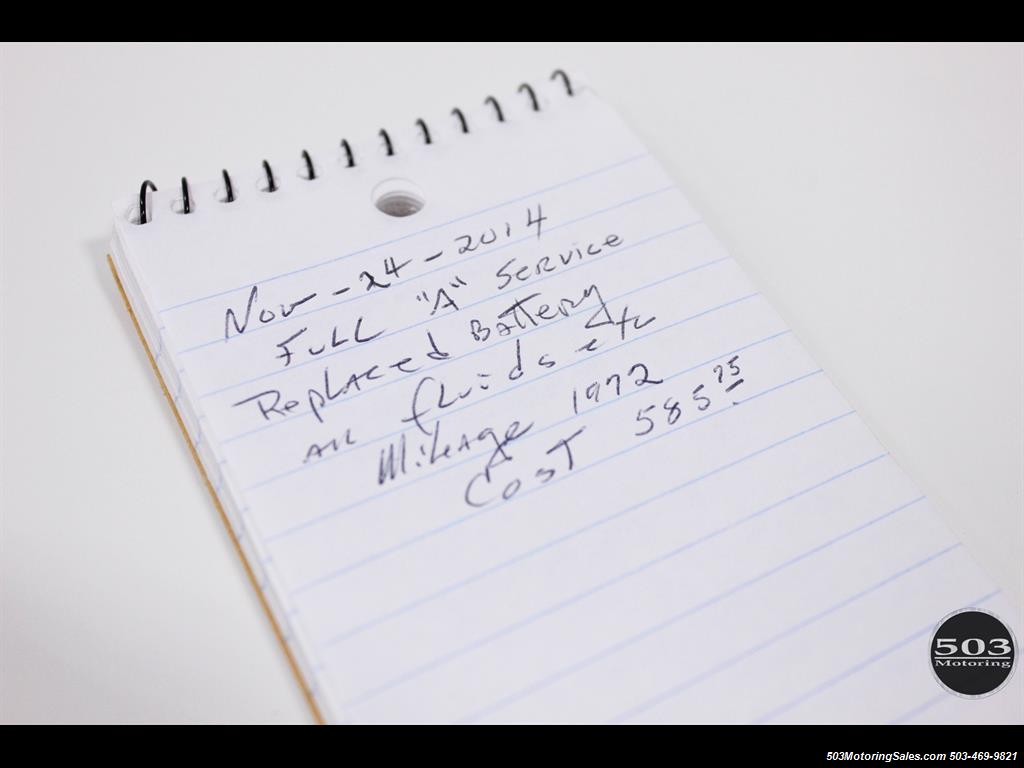 Nov - 24 - 2014
Full "A" Service
Replaced Battery
All fluids etc
Mileage 1972
Cost 585 75
503
Motoring
503MotoringSales.com 503-469-9821